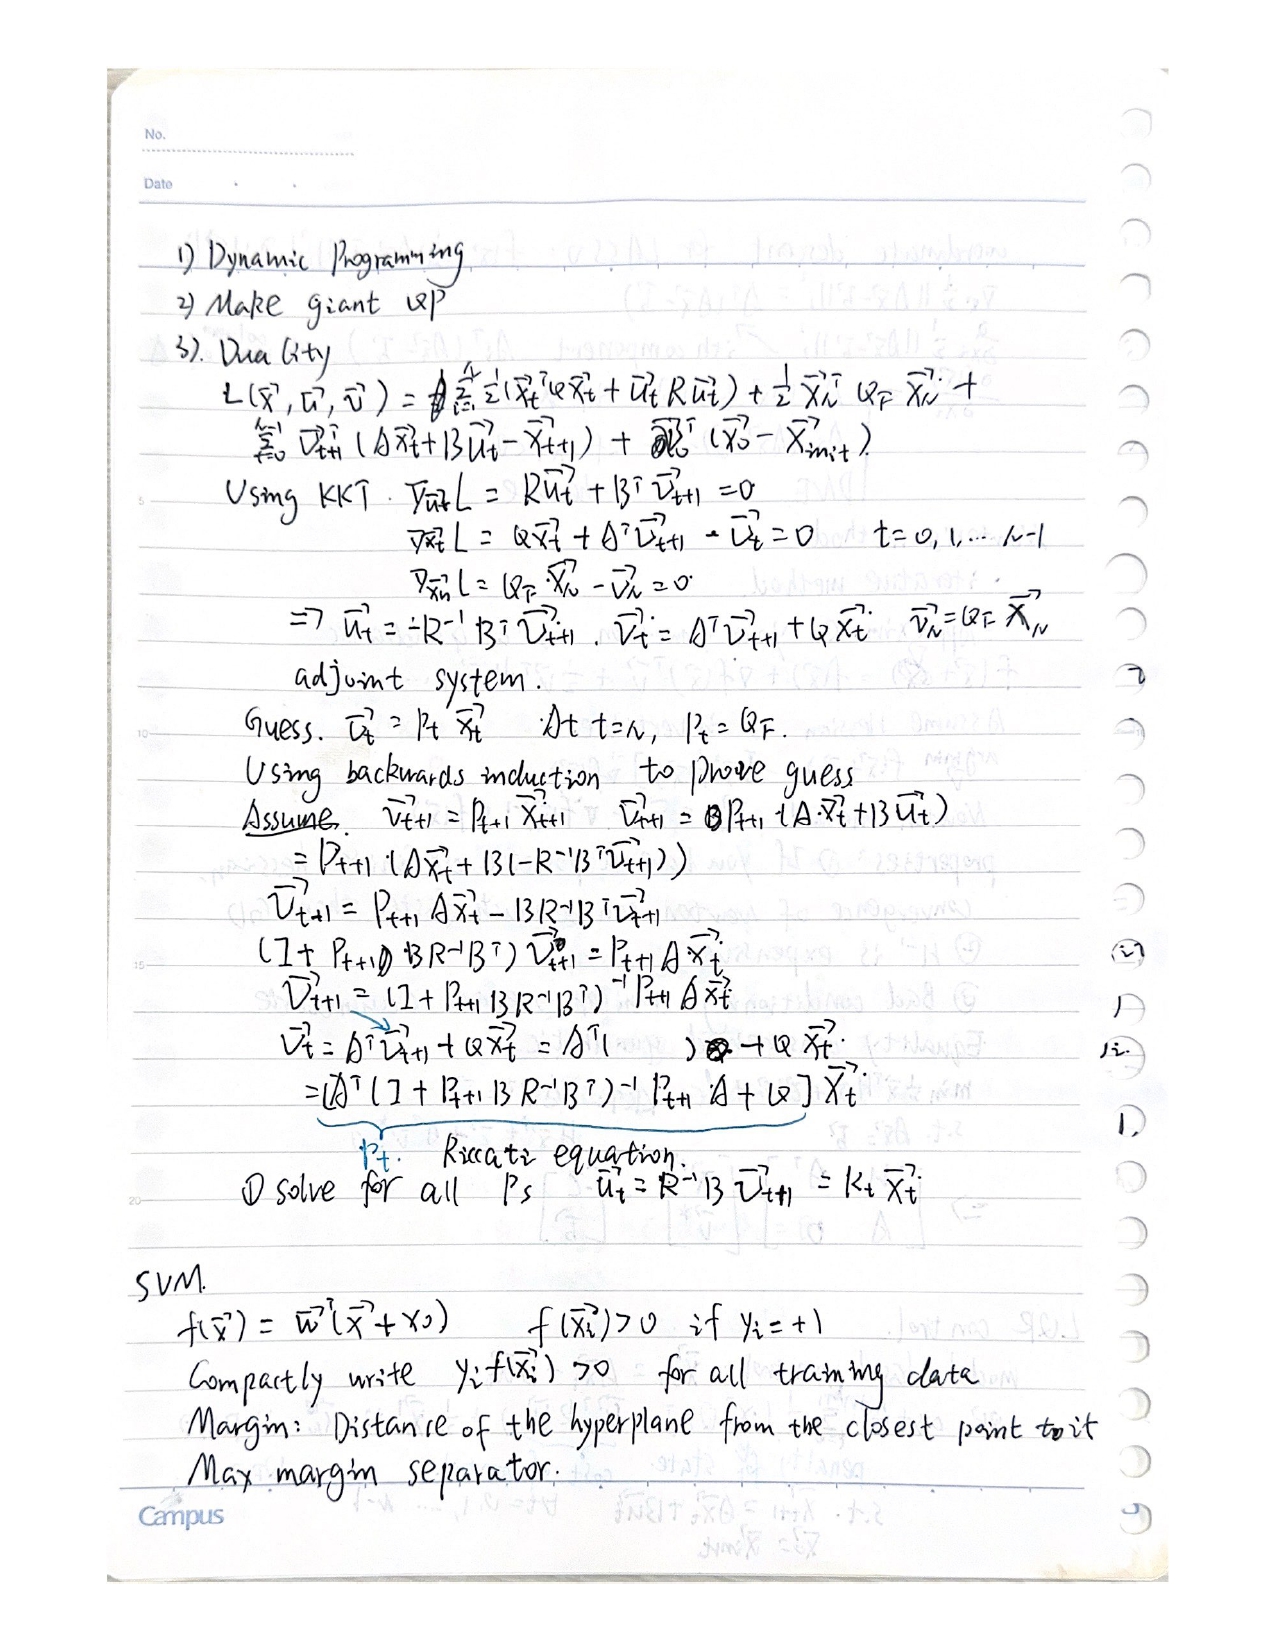 No.
Date
1) Dynamic Programming
2) Make giant QP
3). Duality
L(x⃗, u⃗, v⃗) = Σ ½(x⃗tᵀQx⃗t + u⃗tᵀRu⃗t) + ½ x⃗Nᵀ QF x⃗N +
Σ_{t=0}^{N-1} v⃗t+1ᵀ (Ax⃗t + Bu⃗t − x⃗t+1) + (x⃗0 − x⃗init).
Using KKT. ∇u⃗t L = Ru⃗t + Bᵀ v⃗t+1 = 0
∇x⃗t L = Qx⃗t + Aᵀv⃗t+1 − v⃗t = 0 t = 0, 1, ... N−1
∇x⃗N L = QF x⃗N − v⃗N = 0
⇒ u⃗t = −R⁻¹ Bᵀ v⃗t+1. v⃗t = Aᵀ v⃗t+1 + Q x⃗t v⃗N = QF x⃗N
adjoint system.
Guess. v⃗t = Pt x⃗t At t=N, Pt = QF.
Using backwards induction to prove guess
Assume. v⃗t+1 = Pt+1 x⃗t+1 v⃗t+1 = Pt+1 (A x⃗t + B u⃗t)
= Pt+1 (Ax⃗t + B(−R⁻¹Bᵀv⃗t+1))
v⃗t+1 = Pt+1 Ax⃗t − BR⁻¹Bᵀv⃗t+1
(I + Pt+1 BR⁻¹Bᵀ) v⃗t+1 = Pt+1 A x⃗t
v⃗t+1 = (I + Pt+1 BR⁻¹Bᵀ)⁻¹ Pt+1 A x⃗t
v⃗t = Aᵀv⃗t+1 + Qx⃗t = Aᵀ( ) + Q x⃗t.
= [Aᵀ(I + Pt+1 B R⁻¹Bᵀ)⁻¹ Pt+1 A + Q] x⃗t
Pt. Riccati equation.
① solve for all Ps u⃗t = R⁻¹B v⃗t+1 = Kt x⃗t
SVM.
f(x⃗) = w⃗ᵀ(x⃗ + x0) f(x⃗i) > 0 if yi = +1
Compactly write yi f(x⃗i) > 0 for all training data
Margin: Distance of the hyperplane from the closest point to it
Max margin separator.
Campus